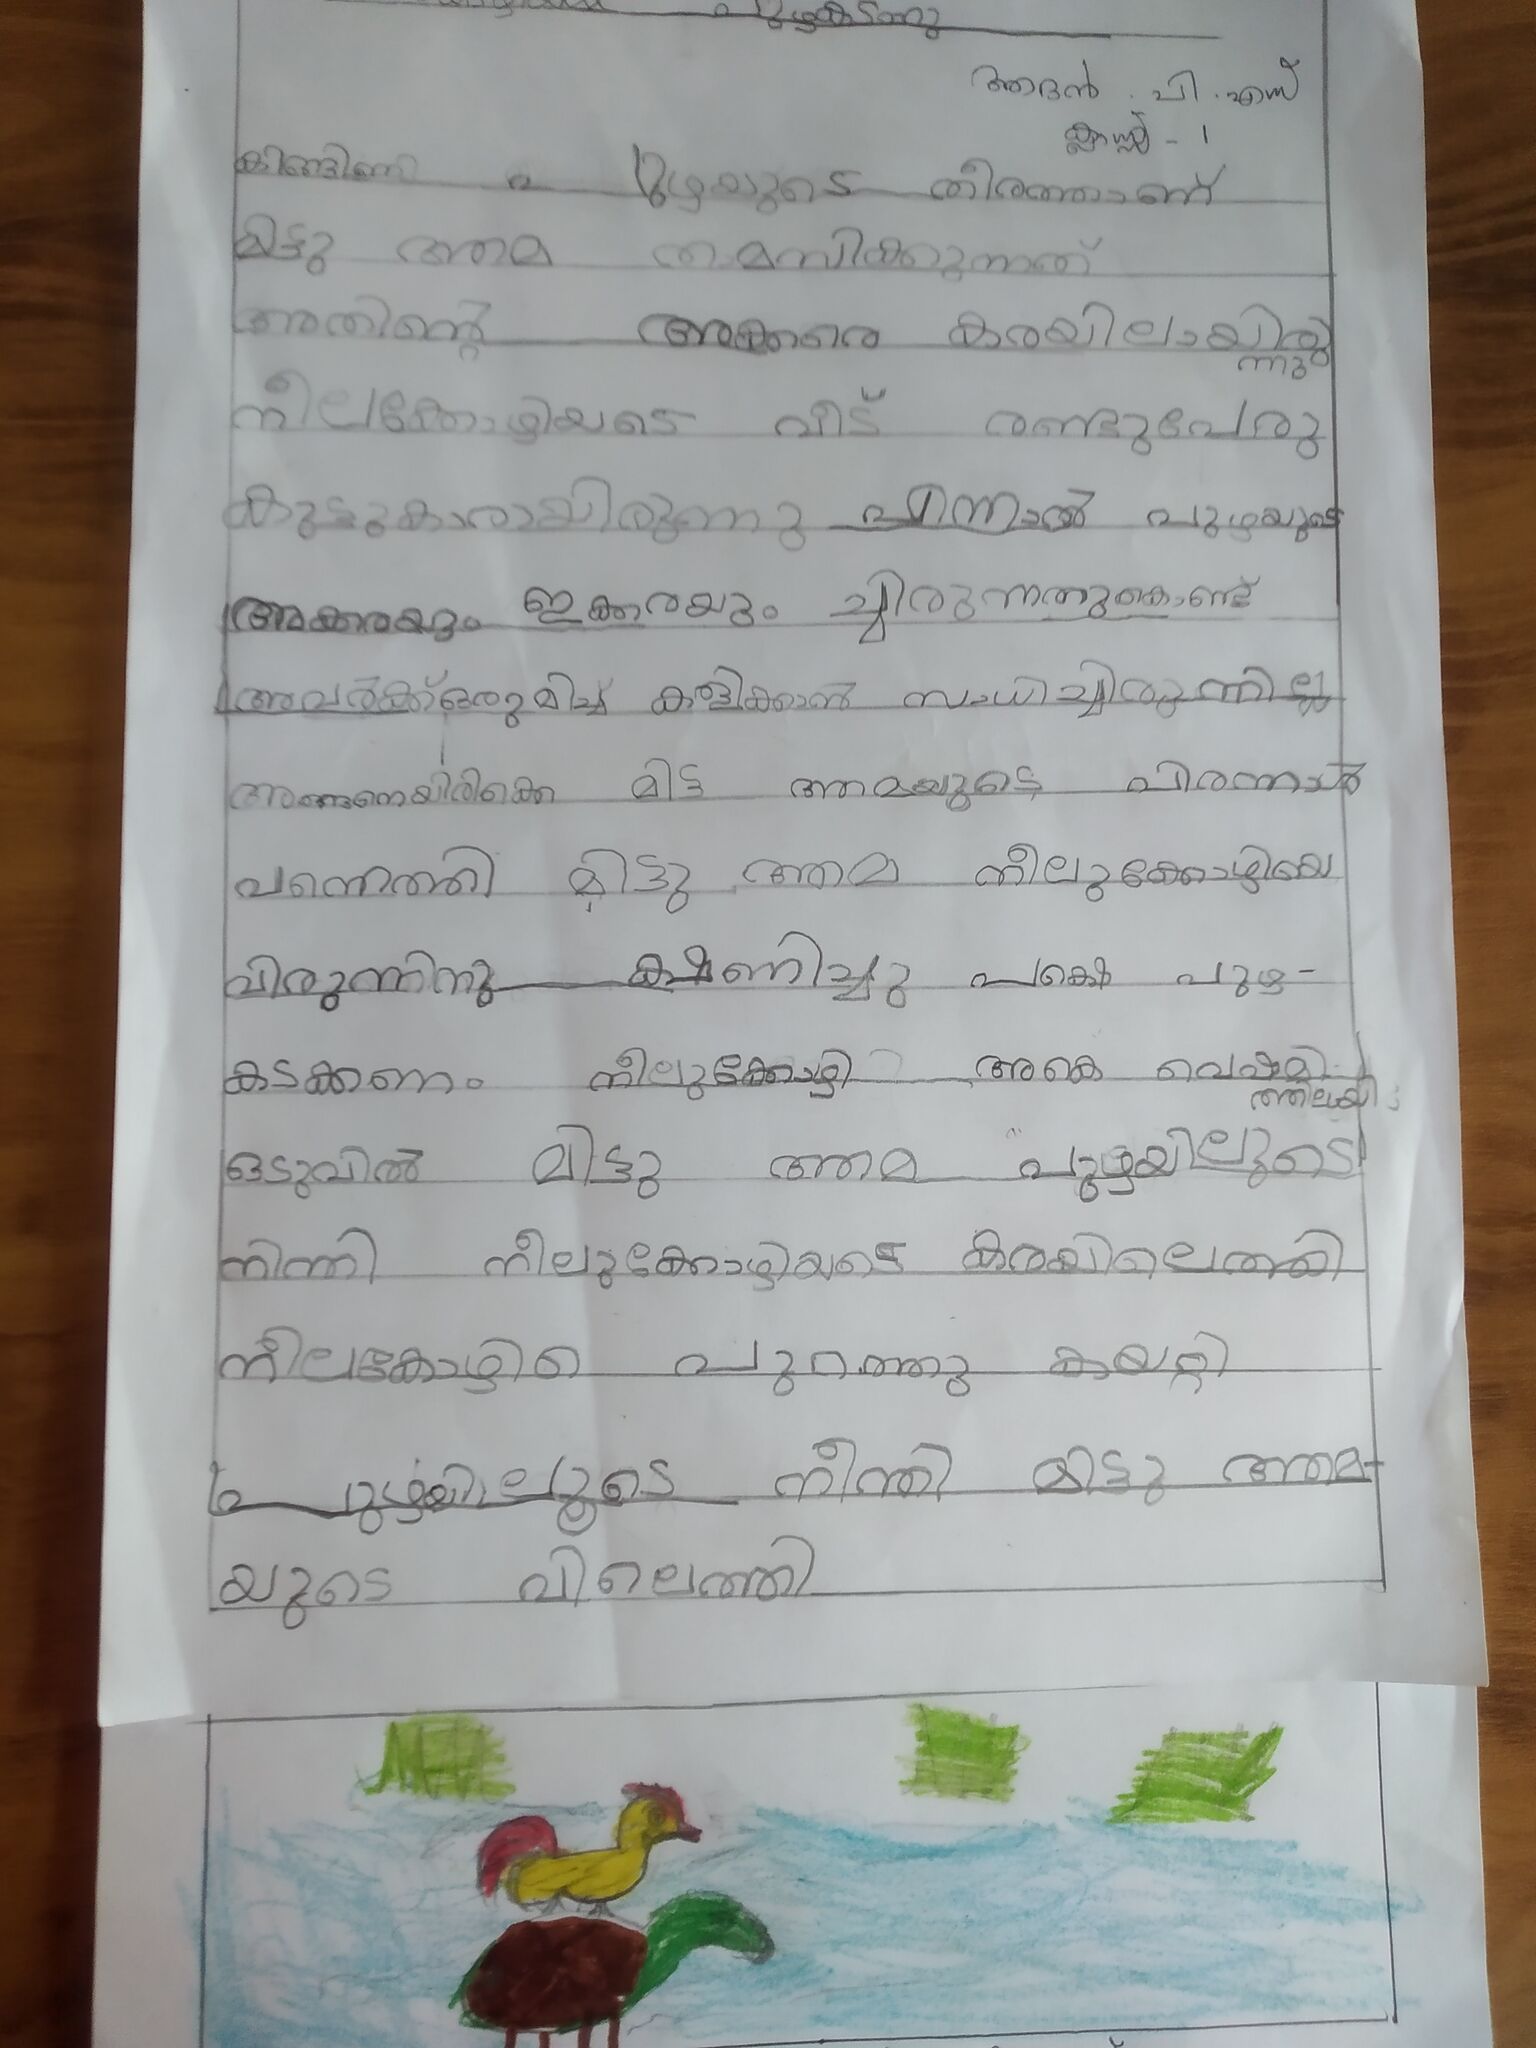 പുഴകടന്നു
ആദൻ . പി . എസ്
ക്ലാസ്സ് - 1
കിങ്ങിണി പുഴയുടെ തീരത്താണ്
മിട്ടു ആമ താമസിക്കുന്നത്
അതിന്റെ അക്കരെ കരയിലായിരു
ന്നു
നീലക്കോഴിയടെ വീട് രണ്ടുപേരു
കുട്ടുകാരായിരുന്നു എന്നാൽ പുഴയുടെ
അക്കരയും ഇക്കരയും ആയിരുന്നതുകൊണ്ട്
അവർക്ക് ഒരുമിച്ച് കളിക്കാൻ സാധിച്ചിരുന്നില്ല
അങ്ങനെയിരിക്കെ മിട്ടു ആമയുടെ പിറന്നാൾ
വന്നെത്തി മിട്ടു ആമ നീലുക്കോഴിയെ
വിരുന്നിനു ക്ഷണിച്ചു പക്ഷെ പുഴ-
കടക്കണം നീലുക്കോഴി അകെ വെഷമ
ത്തിലായി
ഒടുവിൽ മിട്ടു ആമ പുഴയിലുടെ
നിന്തി നീലുക്കോഴിയടെ കരയിലെത്തി
നീലകോഴിെ പുറത്തു കയറ്റി
പുഴയിലൂടെ നീന്തി മിട്ടു ആമ-
യുടെ വീലെത്തി